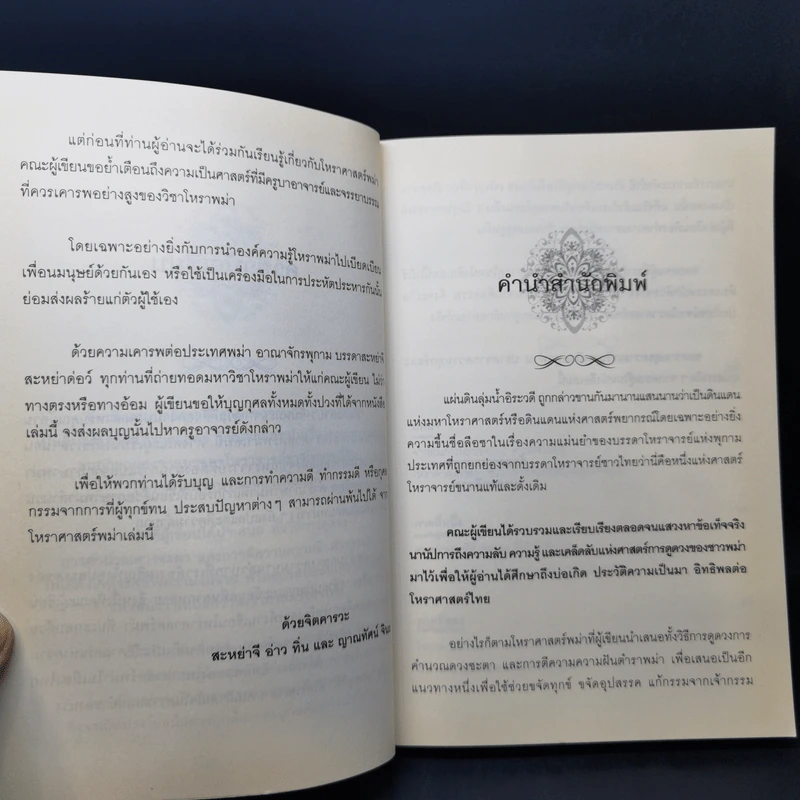 แต่ก่อนที่ท่านผู้อ่านจะได้ร่วมกันเรียนรู้เกี่ยวกับโหราศาสตร์พม่า
คณะผู้เขียนขอย้ำเตือนถึงความเป็นศาสตร์ที่มีครูบาอาจารย์และจรรยาบรรณ
ที่ควรเคารพอย่างสูงของวิชาโหราพม่า
โดยเฉพาะอย่างยิ่งกับการนำองค์ความรู้โหราพม่าไปเบียดเบียน
เพื่อนมนุษย์ด้วยกันเอง หรือใช้เป็นเครื่องมือในการประหัตประหารกันนั้น
ย่อมส่งผลร้ายแก่ตัวผู้ใช้เอง
ด้วยความเคารพต่อประเทศพม่า อาณาจักรพุกาม บรรดาสะหย่าจี
สะหย่าต่อว์ ทุกท่านที่ถ่ายทอดมหาวิชาโหราพม่าให้แก่คณะผู้เขียน ไม่ว่า
ทางตรงหรือทางอ้อม ผู้เขียนขอให้บุญกุศลทั้งหมดทั้งปวงที่ได้จากหนังสือ
เล่มนี้ จงส่งผลบุญนั้นไปหาครูอาจารย์ดังกล่าว
เพื่อให้พวกท่านได้รับบุญ และการทำความดี ทำกรรมดี หรือกุศล
กรรมจากการที่ผู้ทุกข์ทน ประสบปัญหาต่างๆ สามารถผ่านพ้นไปได้ จาก
โหราศาสตร์พม่าเล่มนี้
ด้วยจิตคารวะ
สะหย่าจี อ่าว ทิ่น และ ญาณทัศน์
คำนำสำนักพิมพ์
แผ่นดินลุ่มน้ำอิระวดี ถูกกล่าวขานกันมานานแสนนานว่าเป็นดินแดน
แห่งมหาโหราศาสตร์หรือดินแดนแห่งศาสตร์พยากรณ์โดยเฉพาะอย่างยิ่ง
ความขึ้นชื่อลือชาในเรื่องความแม่นยำของบรรดาโหราจารย์แห่งพุกาม
ประเทศที่ถูกยกย่องจากบรรดาโหราจารย์ชาวไทยว่านี่คือหนึ่งแห่งศาสตร์
โหราจารย์ขนานแท้และดั้งเดิม
คณะผู้เขียนได้รวบรวมและเรียบเรียงตลอดจนแสวงหาข้อเท็จจริง
นานัปการถึงความลับ ความรู้ และเคล็ดลับแห่งศาสตร์การดูดวงของชาวพม่า
มาไว้เพื่อให้ผู้อ่านได้ศึกษาถึงบ่อเกิด ประวัติความเป็นมา อิทธิพลต่อ
โหราศาสตร์ไทย
อย่างไรก็ตามโหราศาสตร์พม่าที่ผู้เขียนนำเสนอทั้งวิธีการดูดวงการ
คำนวณดวงชะตา และการตีความความฝันตำราพม่า เพื่อเสนอเป็นอีก
แนวทางหนึ่งเพื่อใช้ช่วยขจัดทุกข์ ขจัดอุปสรรค แก้กรรมจากเจ้ากรรม